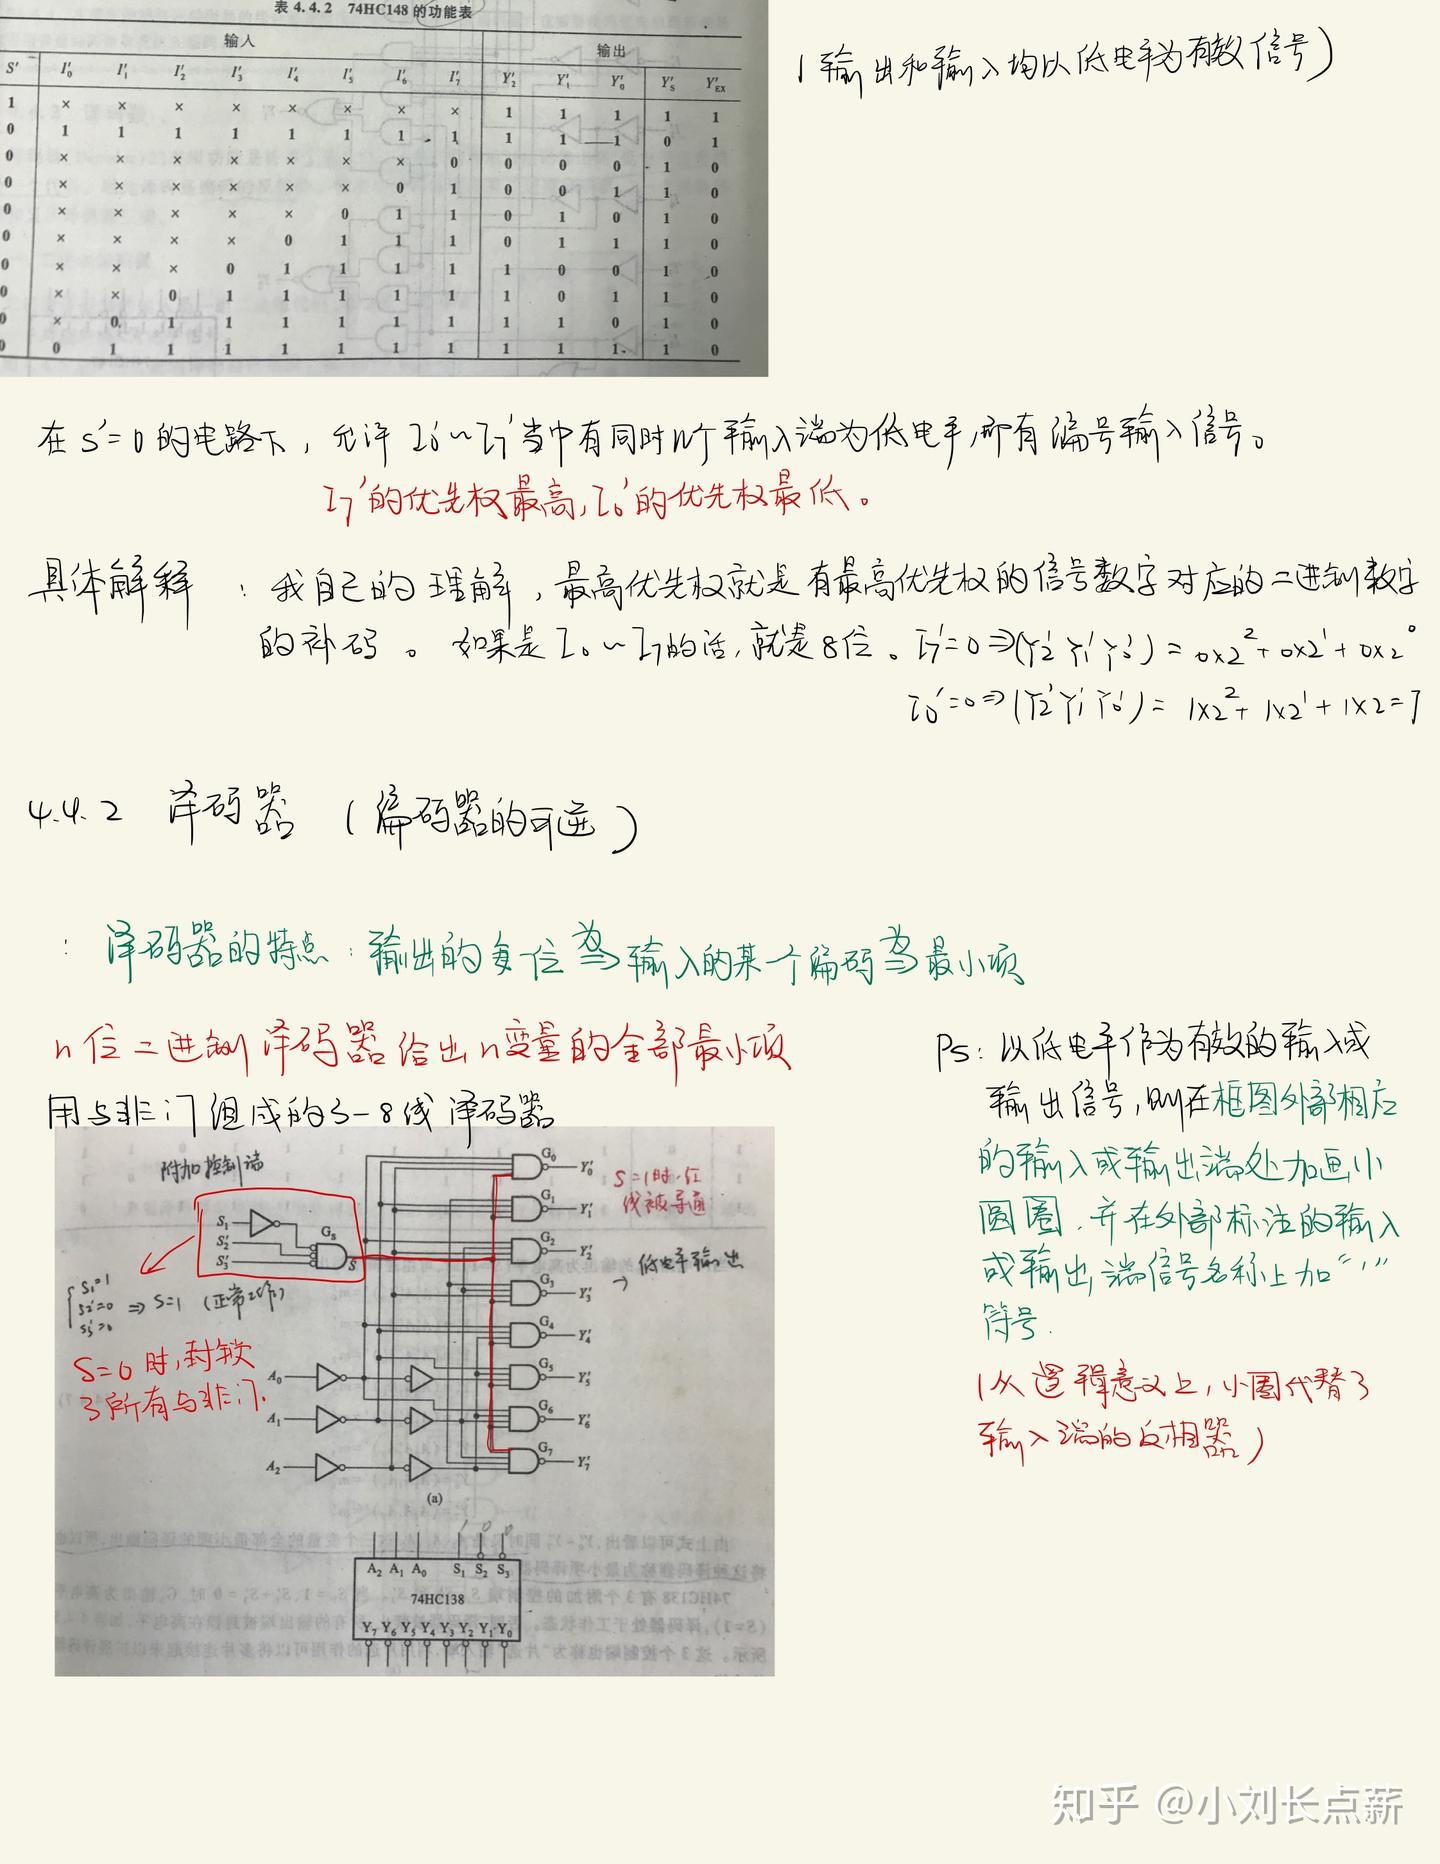 表 4.4.2 74HC148 的功能表
输入 输出
S′ I′0 I′1 I′2 I′3 I′4 I′5 I′6 I′7 Y′2 Y′1 Y′0 Y′S Y′EX
1 × × × × × × × × 1 1 1 1 1
0 1 1 1 1 1 1 1 1 1 1 1 0 1
0 × × × × × × × 0 0 0 0 1 0
0 × × × × × × 0 1 0 0 1 1 0
0 × × × × × 0 1 1 0 1 0 1 0
0 × × × × 0 1 1 1 0 1 1 1 0
0 × × × 0 1 1 1 1 1 0 0 1 0
0 × × 0 1 1 1 1 1 1 0 1 1 0
0 × 0 1 1 1 1 1 1 1 1 0 1 0
0 0 1 1 1 1 1 1 1 1 1 1 1 0
(输出和输入均以低电平为有效信号)
在S′=0的电路下,允许I0′~I7′当中有同时几个输入端为低电平,即有编号输入信号。
I7′的优先权最高,I0′的优先权最低。
具体解释:我自己的理解,最高优先权就是有最高优先权的信号数字对应的二进制数字
的补码。如果是I0~I7的话,就是8位。I7′=0⇒(Y2′Y1′Y0′)=0×2²+0×2¹+0×2⁰
I0′=0⇒(Y2′Y1′Y0′)=1×2²+1×2¹+1×2=7
4.4.2 译码器(编码器的可逆)
:译码器的特点:输出的每位为⇒输入的某一个编码为⇒最小项
n位二进制译码器给出n变量的全部最小项
用与非门组成的3-8线译码器
附加控制端
S1 S′2 S′3 GS S
S1=1
S2′=0 ⇒S=1 (正常工作)
S3′=0
S=0时,封锁
了所有与非门.
S=1时,红
线被导通
→低电平输出
A0
A1
A2
G0 Y′0
G1 Y′1
G2 Y′2
G3 Y′3
G4 Y′4
G5 Y′5
G6 Y′6
G7 Y′7
(a)
1 0 0
A2 A1 A0 S1 S2 S3
74HC138
Y7 Y6 Y5 Y4 Y3 Y2 Y1 Y0
Ps:以低电平作为有效的输入或
输出信号,则在框图外部相应
的输入或输出端处加画小
圆圈.并在外部标注的输入
或输出端信号名称上加“′”
符号.
(从逻辑意义上,小圈代替了
输入端的反相器)
知乎 @小刘长点薪